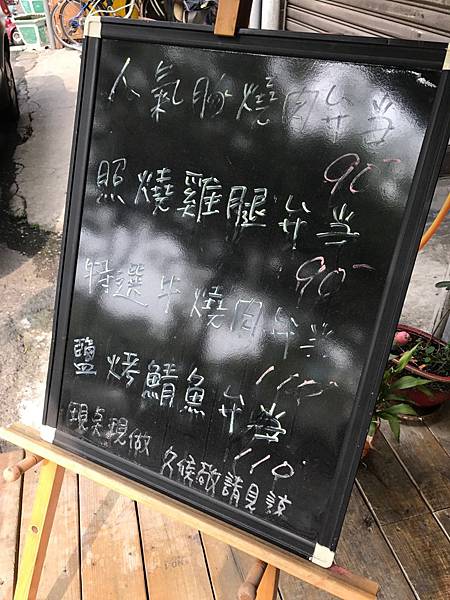 人氣豚燒肉弁当
90-
照燒雞腿弁当
90-
特選牛燒肉弁当
110-
鹽烤鯖魚弁当
110-
現点現做 久候敬請見諒